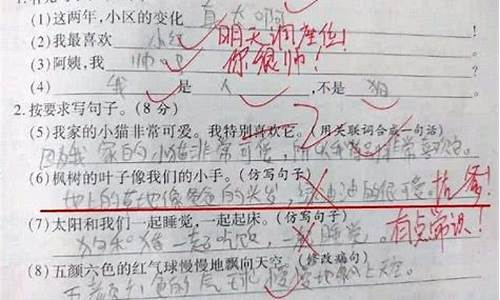 (1)这两年,小区的变化真大啊
(2)我最喜欢 小红 明天调座位!
(3)阿姨,我 帅吗 你很帅!
(4) 我 是 人 ,不是 狗
2.按要求写句子。(8 分)
(5)我家的小猫非常可爱。我特别喜欢它。(用关联词合成一句话)
因为我家的小猫非常可爱,所以我 非常喜欢它。
(6)枫树的叶子像我们的小手。(仿写句子)
地上的草地像爸爸的头发,绿油油的很可爱。抗爹!
(7)太阳和我们一起睡觉,一起起床。(仿写句子)
狗和猪一起吃饭,一起睡觉。有点常识!
(8)五颜六色的红气球慢慢地飘向天空。(修改病句)
五颜六色的气球慢慢地飘上天空。